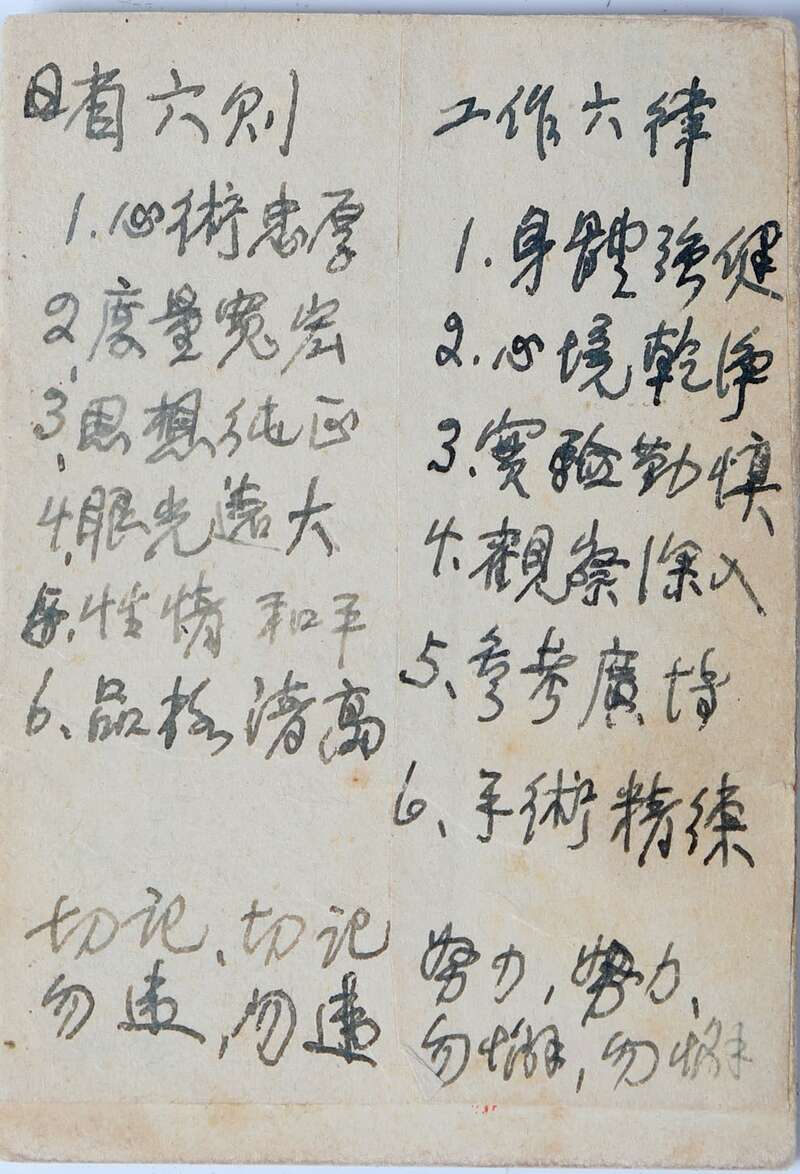 日省六則
1.心術忠厚
2.度量寬宏
3.思想純正
4.眼光遠大
5.性情和平
6、品格清高
切記、切記
勿違,勿違
工作六律
1.身體強健
2.心境乾淨
3.實驗勤慎
4.觀察深入
5、參考廣博
6、手術精練
努力,努力,
勿懈,勿懈